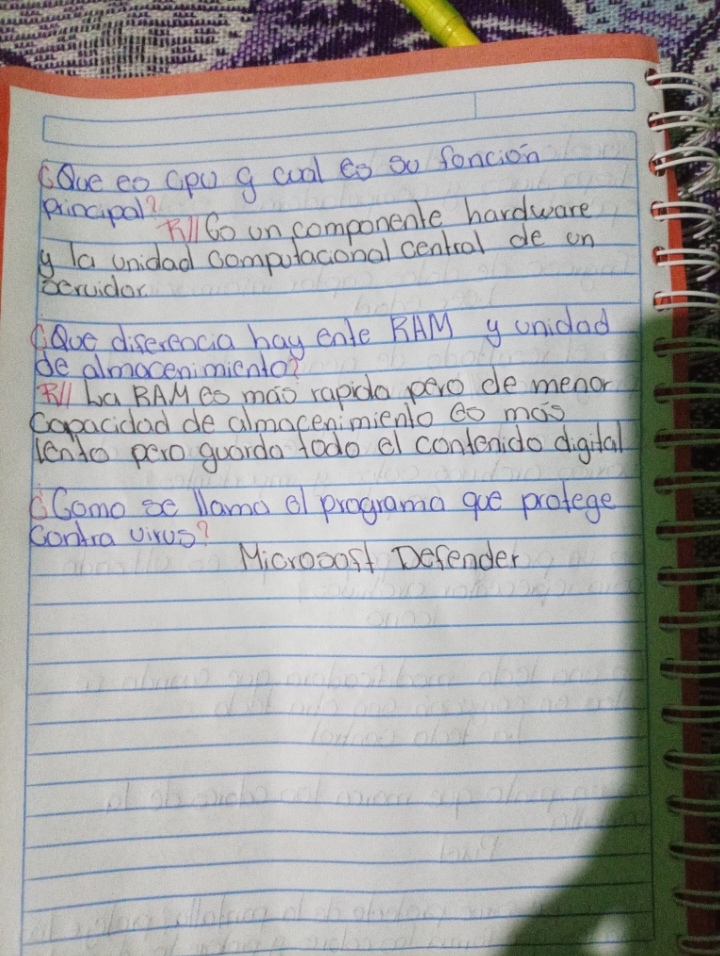 ¿Que es cpu y cual es su función
principal?
R// Es un componente hardware
y la unidad computacional central de un
servidor.
¿Que diferencia hay ente RAM y unidad
de almacenimiento?
R// La RAM es más rapida pero de menor
capacidad de almacenimiento es más
lento pero guarda todo el contenido digital
¿Como se llama el programa que protege
contra virus?
Microsoft Defender